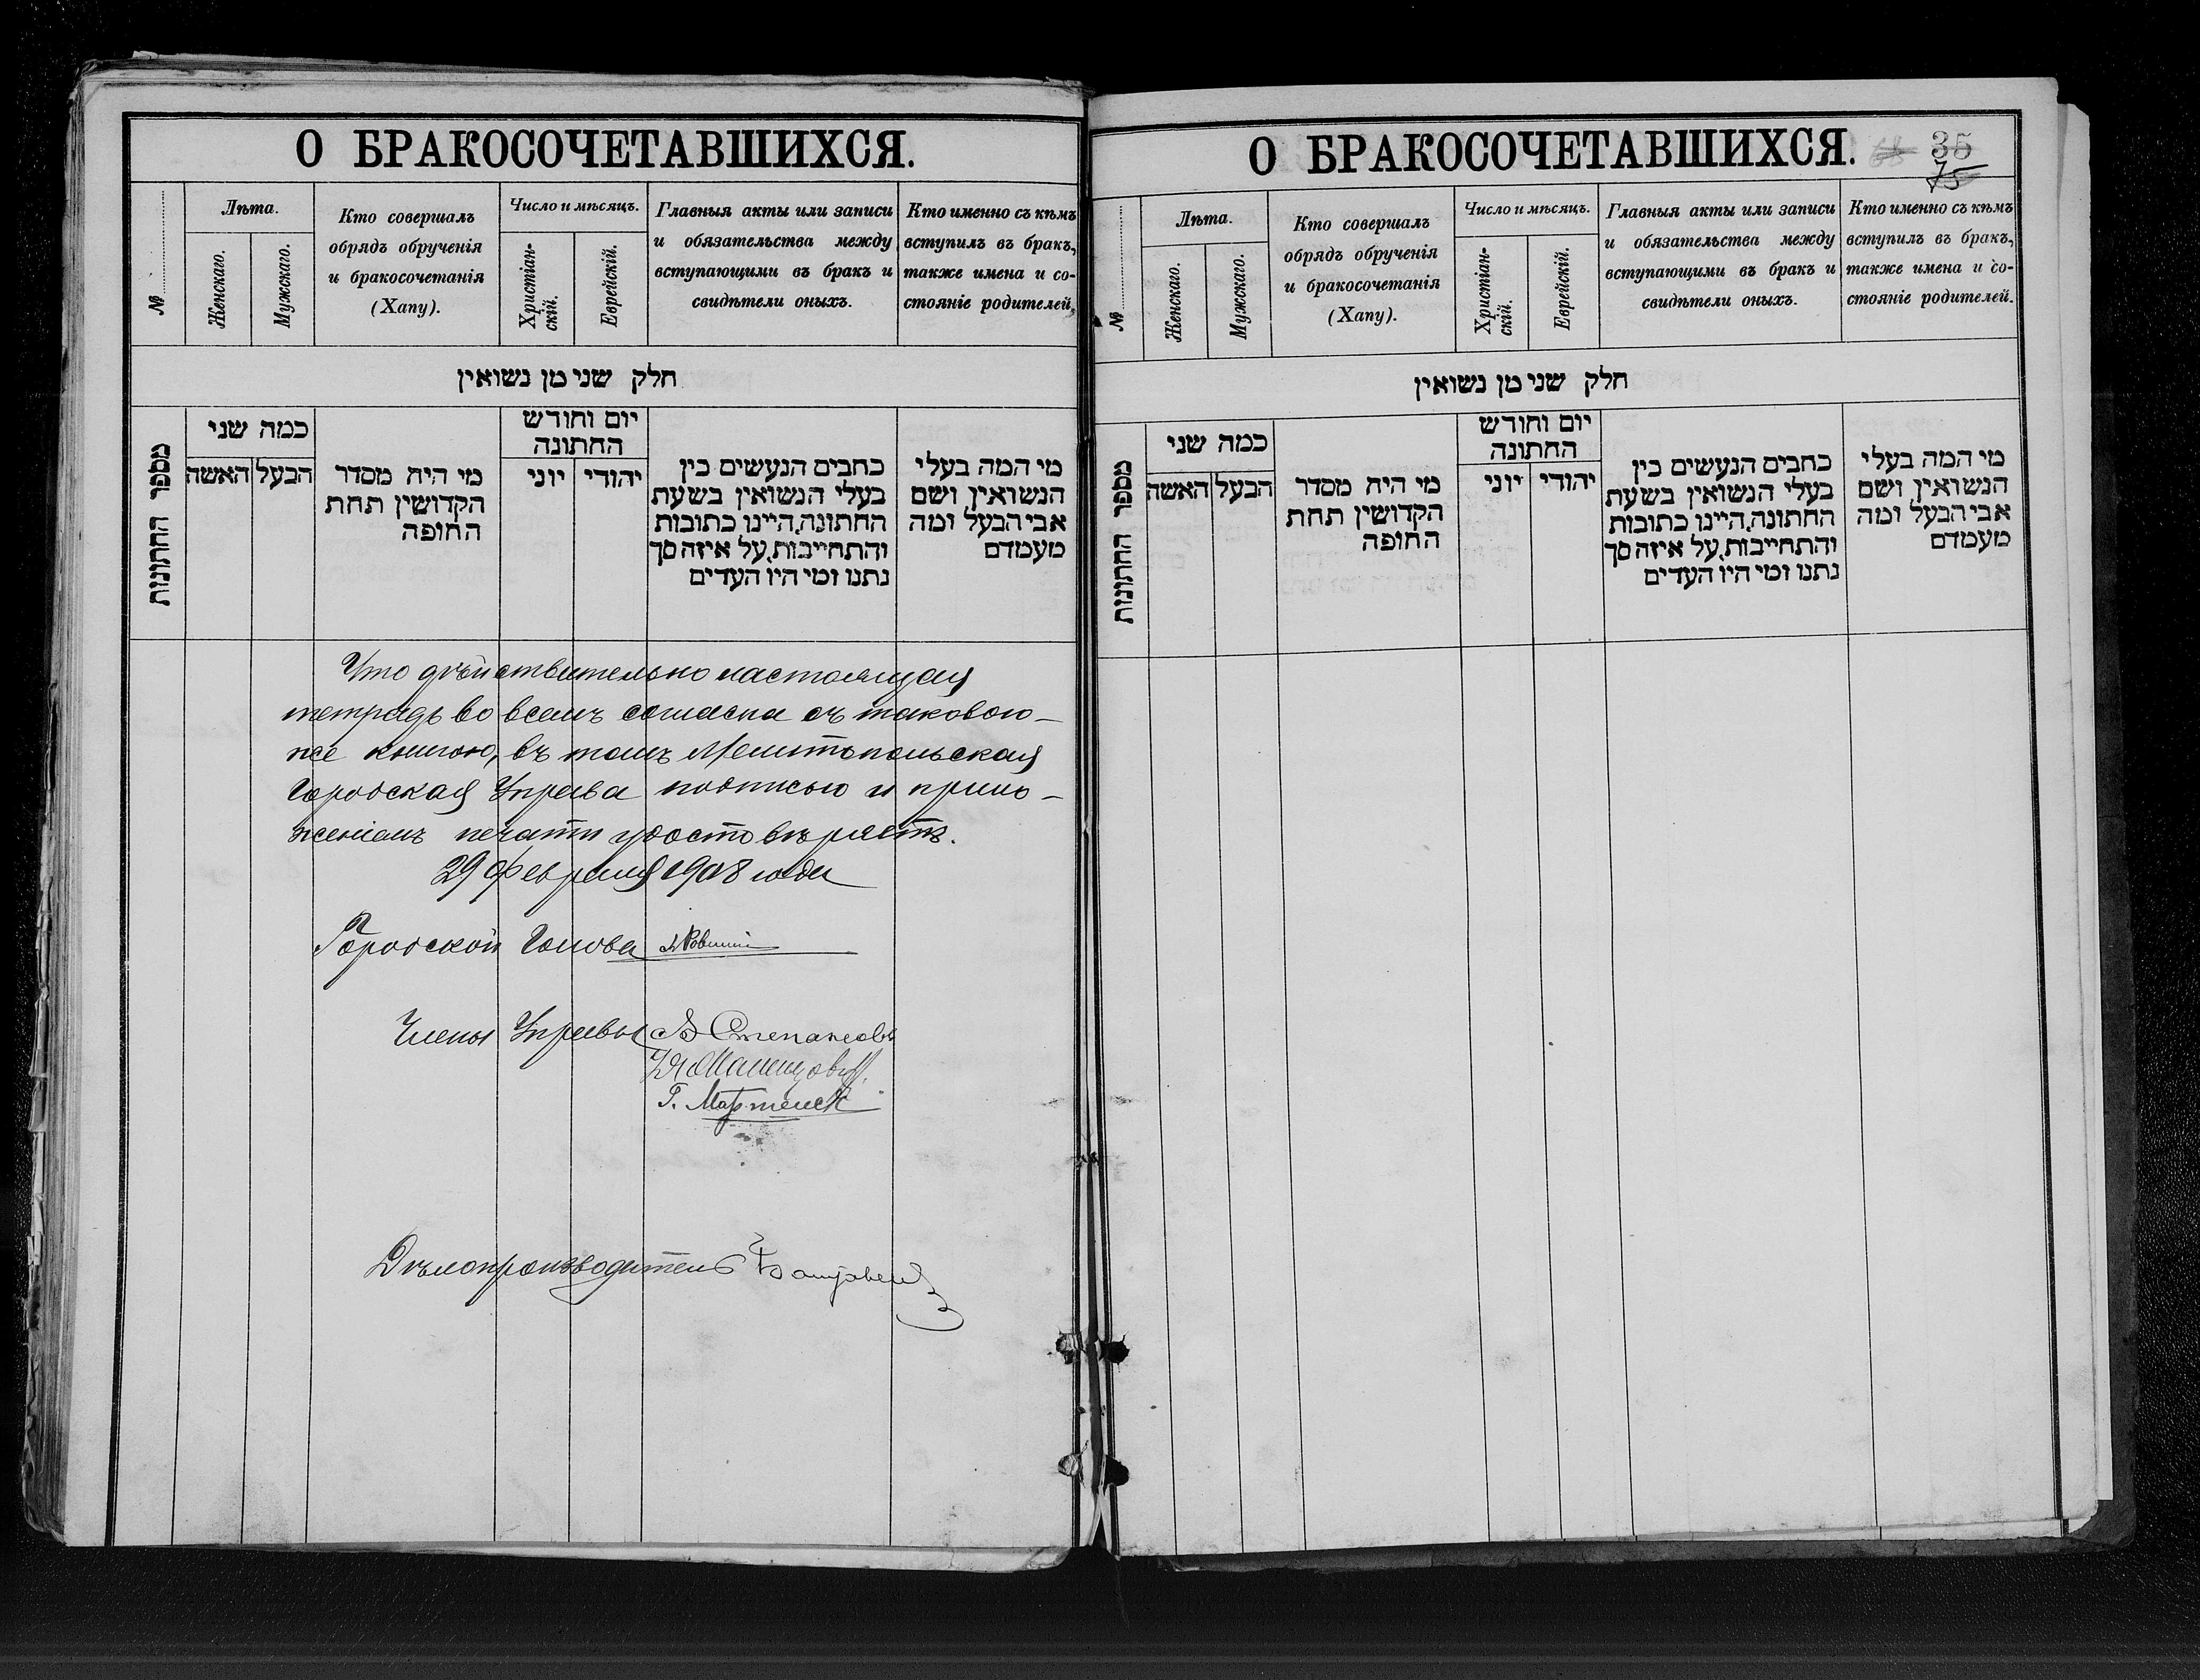 О БРАКОСОЧЕТАВШИХСЯ.
№
Лѣта.
Женскаго.
Мужскаго.
Кто совершалъ
обрядъ обрученія
и бракосочетанія
(Хапу).
Число и мѣсяцъ.
Христіан-
скій.
Еврейскій.
Главныя акты или записи
и обязательства между
вступающими въ бракъ и
свидѣтели оныхъ.
Кто именно съ кѣмъ
вступилъ въ бракъ,
также имена и со-
стояніе родителей.
חלק שני מן נשואין
מספר החתונות
כמה שני
האשה
הבעל
מי היה מסדר
הקדושין תחת
החופה
יום וחודש
החתונה
יוני
יהודי
כתבים הנעשים בין
בעלי הנשואין בשעת
החתונה, היינו כתובות
והתחייבות, על איזה סך
נתנו ומי היו העדים
מי המה בעלי
הנשואין ושם
אבי הבעל ומה
מעמדם
Что дѣйствительно настоящая
тетрадь во всемъ согласна съ таковою-
же книгою, въ томъ Мелитопольская
Городская Управа подписью и прило-
женіемъ печати удостовѣряетъ.
29 Февраля 1908 года
Городской Голова
Члены Управы Степановъ
Г. Мартенсъ
Дѣлопроизводитель
О БРАКОСОЧЕТАВШИХСЯ.
35
75
№
Лѣта.
Женскаго.
Мужскаго.
Кто совершалъ
обрядъ обрученія
и бракосочетанія
(Хапу).
Число и мѣсяцъ.
Христіан-
скій.
Еврейскій.
Главныя акты или записи
и обязательства между
вступающими въ бракъ и
свидѣтели оныхъ.
Кто именно съ кѣмъ
вступилъ въ бракъ,
также имена и со-
стояніе родителей.
חלק שני מן נשואין
מספר החתונות
כמה שני
האשה
הבעל
מי היה מסדר
הקדושין תחת
החופה
יום וחודש
החתונה
יוני
יהודי
כתבים הנעשים בין
בעלי הנשואין בשעת
החתונה, היינו כתובות
והתחייבות, על איזה סך
נתנו ומי היו העדים
מי המה בעלי
הנשואין ושם
אבי הבעל ומה
מעמדם